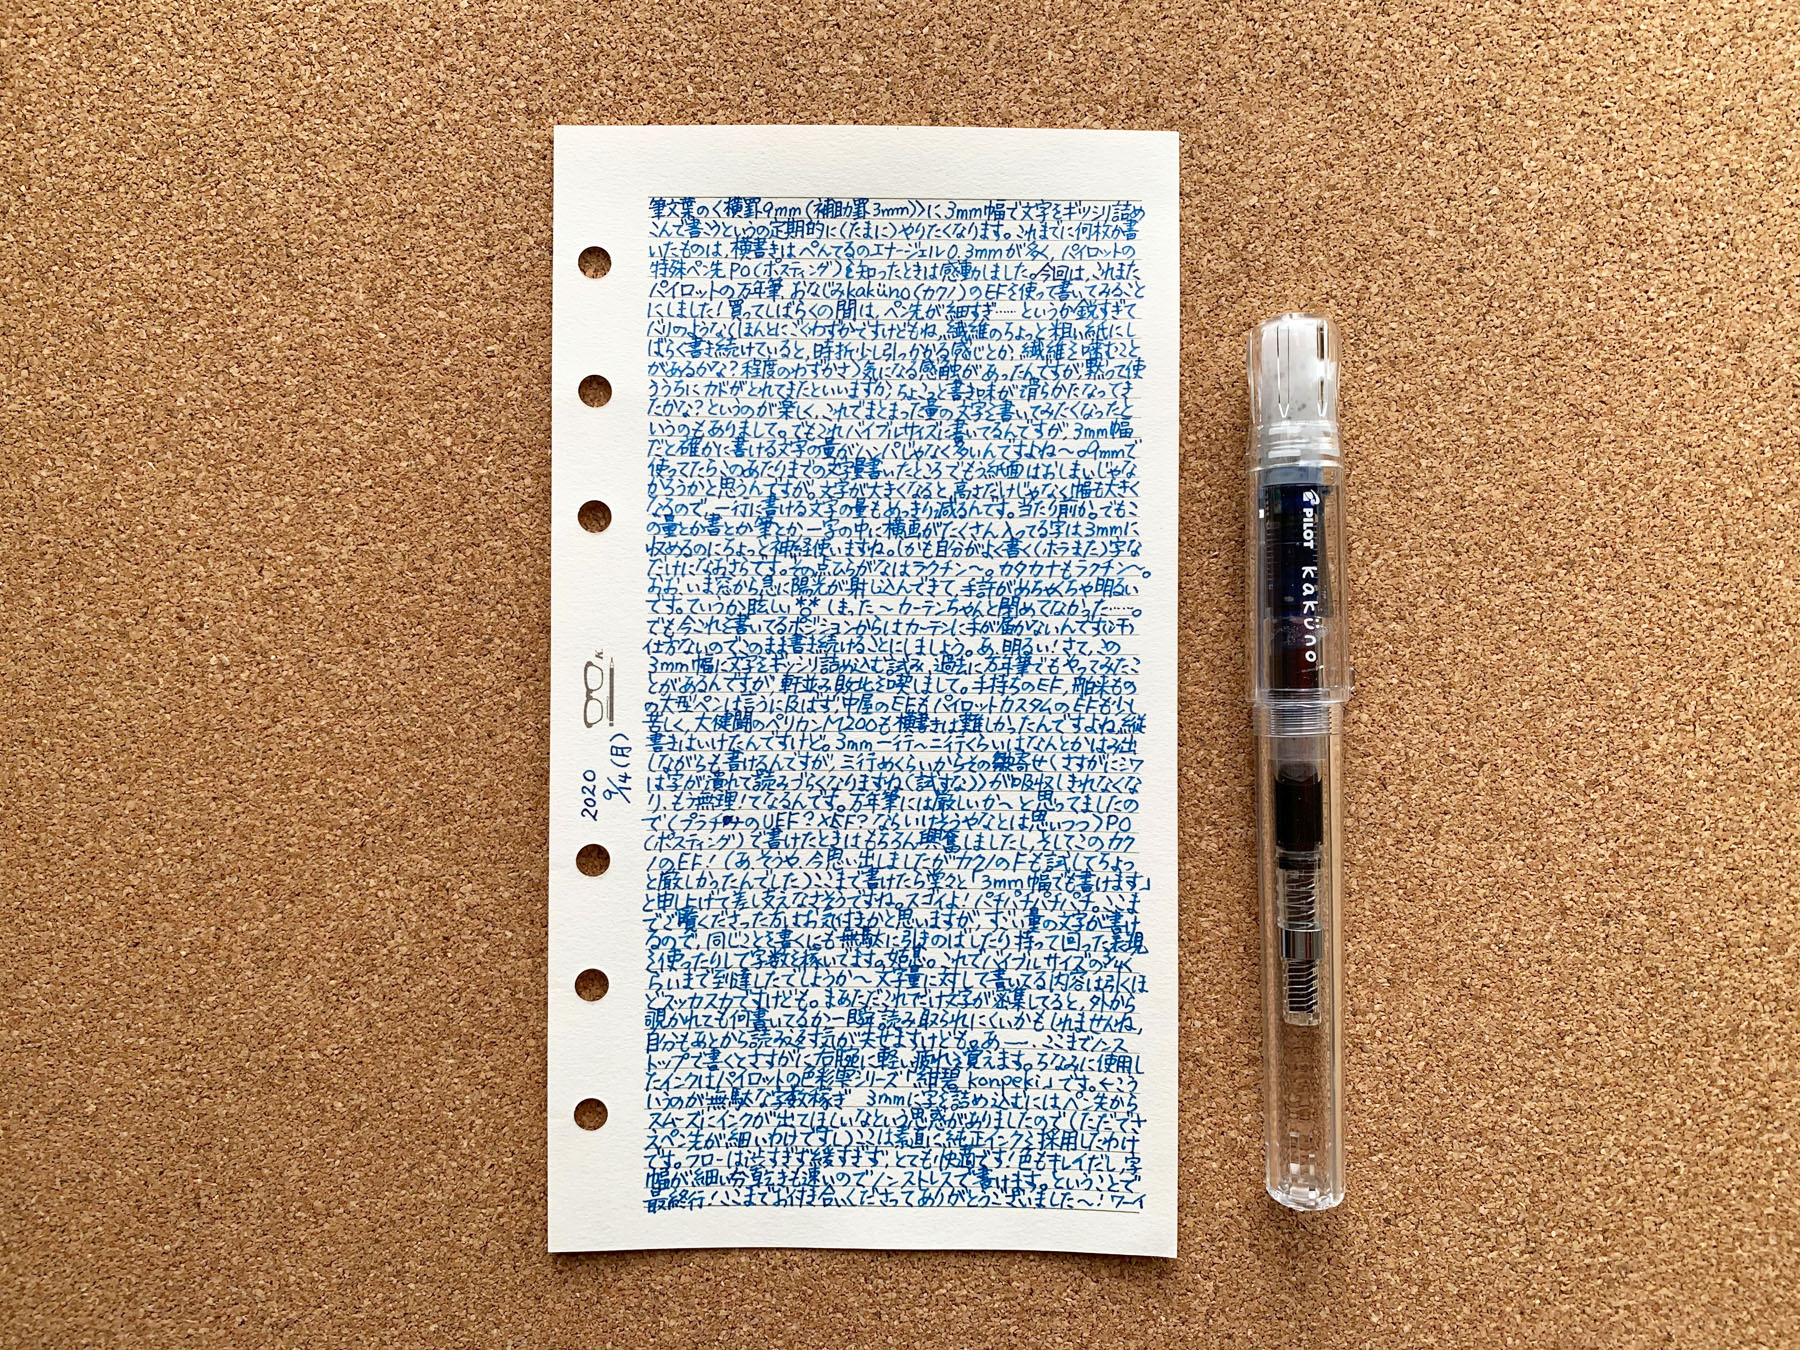 筆文葉の〈横罫9mm(補助罫3mm)〉に3mm幅で文字をギッシリ詰め
こんで書こうというの定期的に(たまに)やりたくなります。これまでに何枚か書
いたものは、横書きはぺんてるのエナージェル0.3mmが多く、パイロットの
特殊ペン先PO(ポスティング)を知ったときは感動しました。今回は、これまた
パイロットの万年筆、おなじみkaküno(カクノ)のEFを使って書いてみること
にしました!買ってしばらくの間は、ペン先が細すぎ……というか鋭すぎて
バリのような(ほんとにごくわずかですけどもね、繊維のちょっと粗い紙にし
ばらく書き続けていると、時折少し引っかかる感じとか、繊維を噛むこと
があるかな?程度のわずかさ)気になる感触があったんですが、黙って使
ううちにカドがとれてまたといいますか、ちょこっと書き味が滑らかになってき
たかな?というのが楽しく、これでまとまった量の文字を書いてみたくなったと
いうのもありまして。でもこれバイブルサイズに書いてるんですが、3mm幅
だと確かに書ける文字の量がハンパじゃなく多いんですよね〜。9mmで
使ってたらこのあたりまでの文字量書いたところでもう紙面はおしまいじゃな
かろうかと思うんですが。文字が大きくなると、高さだけじゃなく幅も大きく
なるので、一行に書ける文字の量もめっきり減るんです。当たり前か。でもこ
の量とか書とか筆とか一字の中に横画がたくさん入ってる字は3mmに
収めるのにちょっと神経使いますね。しかも自分がよく書く(ホラまた)字な
だけになおさらです。その点ひらがなはラクチン〜。カタカナもラクチン〜。
おお、いま窓から急に陽光が射し込んできて、手許がめちゃくちゃ明るい
です。ていうか眩しい しまった〜カーテンちゃんと閉めてなかった……。
でも今これを書いてるポジションからはカーテンに手が届かないんです(汗)
仕方ないのでこのまま書き続けることにしましょう。あ、明るい!さて、この
3mm幅に文字をギッシリ詰め込む試み、過去に万年筆でもやってみたこ
とがあるんですが、軒並み敗北を喫しまして。手持ちのEF、舶来もの
の大型ペンは言うに及ばず、中屋のEFもパイロットカスタムのEFも少し
苦しく、大健闘のペリカンM200も横書きは難しかったんですよね、縦
書きはいけたんですけど。3mm一行〜二行くらいはなんとかはみ出
しながらも書けるんですが、三行めくらいからその皺寄せ(さすがにシワ
は字が潰れて読みづらくなりますね(試すな))が吸収しきれなくな
り、もう無理!てなるんです。万年筆には厳しいか〜と思ってましたの
で(プラチナのUEF?XEF?ならいけそうやなとは思いつつ)PO
(ポスティング)で書けたときはもちろん興奮しましたし、そしてこのカク
ノのEF!(あ、そうや、今思い出しましたがカクノのFも試してちょっ
と厳しかったんでした)ここまで書けたら堂々と「3mm幅でも書けます」
と申し上げて差し支えなさそうですね。スゴイよ!パチパチパチパチ。ここま
でご覧くださった方はお気付きかと思いますが、すごい量の文字が書け
るので、同じことを書くにも無駄に引きのばしたり持って回った表現
を使ったりして字数を稼いでます。姑息。これでバイブルサイズの3/4く
らいまで到達したでしょうか〜文字量に対して書いてる内容は引くほ
どスッカスカですけども。まあただこれだけ文字が密集してると、外から
覗かれても何書いてるか一瞬で読み取られにくいかもしれませんね、
自分もあとから読み返す気が失せますけども。あー、ここまでノンス
トップで書くとさすがに右腕に軽い疲れを覚えます。ちなみに使用し
たインクはパイロットの色彩雫シリーズ「紺碧 konpeki」です。←こう
いうのが無駄な字数稼ぎ 3mmに字を詰め込むにはペン先から
スムーズにインクが出てほしいなという思惑がありましたので(ただでさ
えペン先が細いわけですし)ここは素直に純正インクを採用したわけ
です。フローは渋すぎず緩すぎず、とても快適です!色もキレイだし、字
幅が細い分乾きも速いのでノンストレスで書けます。ということで
最終行!ここまでお付き合いくださってありがとうございました〜!ワーイ
2020
9/14(月)
PILOT kaküno